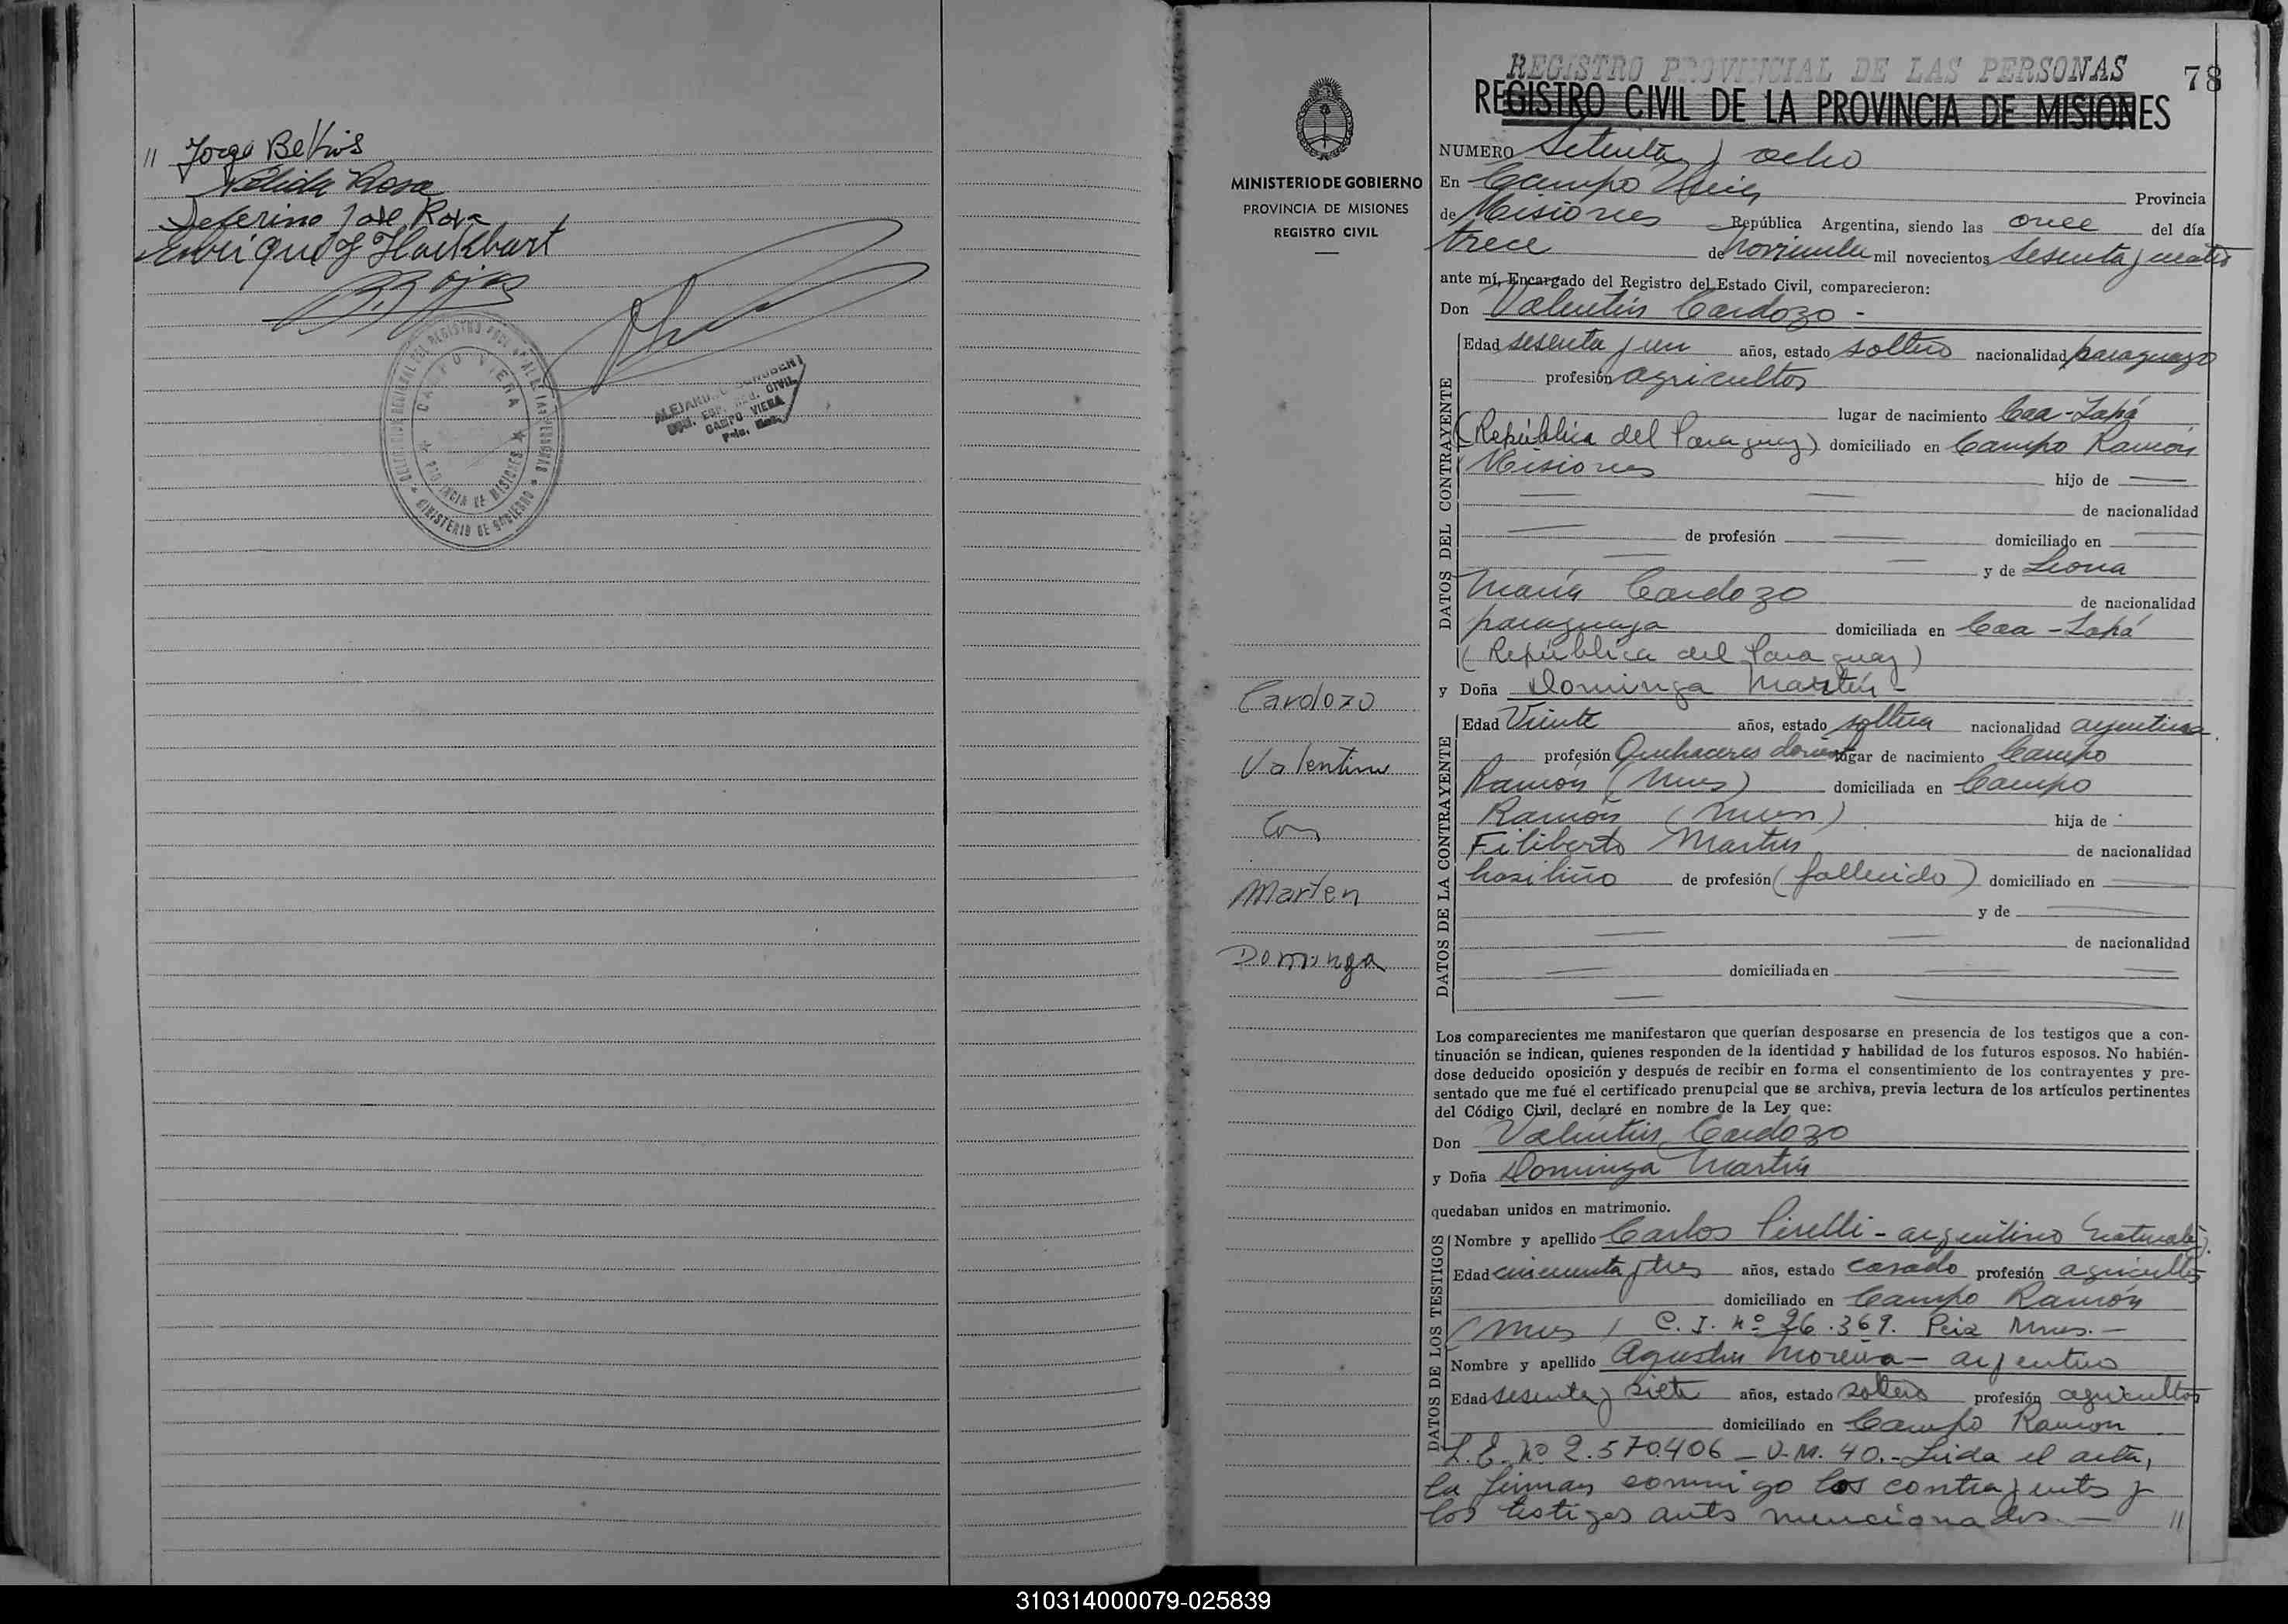 " Jorge Beltris
Nélida Rosa
Seferino José Rosa
Enrique J Hackbart
R Rojas
CAMPO VIERA
PROVINCIA DE MISIONES
MINISTERIO DE GOBIERNO
CAMPO VIERA
78
REGISTRO PROVINCIAL DE LAS PERSONAS
REGISTRO CIVIL DE LA PROVINCIA DE MISIONES
MINISTERIO DE GOBIERNO
PROVINCIA DE MISIONES
REGISTRO CIVIL
NUMERO Setenta y ocho
En Campo Viera Provincia
de Misiones República Argentina, siendo las once del día
trece de noviembre mil novecientos sesenta y cuatro
ante mí, Encargado del Registro del Estado Civil, comparecieron:
Don Valentín Cardozo -
DATOS DEL CONTRAYENTE
Edad sesenta y un años, estado soltero nacionalidad paraguayo
profesión agricultor
lugar de nacimiento Caa-Zapá
(República del Paraguay) domiciliado en Campo Ramón
Misiones
hijo de
de nacionalidad
de profesión domiciliado en
y de Leona
María Cardozo de nacionalidad
paraguaya domiciliada en Caa-Zapá
(República del Paraguay)
y Doña Dominga Martín -
DATOS DE LA CONTRAYENTE
Edad Veinte años, estado soltera nacionalidad argentina.
profesión Quehaceres domést lugar de nacimiento Campo
Ramón (Mnes) domiciliada en Campo
Ramón (Mnes) hija de
Filiberto Martín de nacionalidad
brasileño de profesión (fallecido) domiciliado en
y de
de nacionalidad
domiciliada en
Cardozo
Valentin
Con
Marten
Dominga
Los comparecientes me manifestaron que querían desposarse en presencia de los testigos que a con-
tinuación se indican, quienes responden de la identidad y habilidad de los futuros esposos. No habién-
dose deducido oposición y después de recibir en forma el consentimiento de los contrayentes y pre-
sentado que me fué el certificado prenupcial que se archiva, previa lectura de los artículos pertinentes
del Código Civil, declaré en nombre de la Ley que:
Don Valentín Cardozo
y Doña Dominga Martín
quedaban unidos en matrimonio.
DATOS DE LOS TESTIGOS
Nombre y apellido Carlos Pirelli - argentino (naturaliz).
Edad cincuenta y tres años, estado casado profesión agricultor
domiciliado en Campo Ramón
(Mnes) C. I. Nº 26.369. Pcia Mnes. -
Nombre y apellido Agustin Moreira - argentino
Edad sesenta y siete años, estado soltero profesión agricultor
domiciliado en Campo Ramon
L. E. Nº 2.570.406 - D. M. 40. - Leida el acta,
la firman conmigo los contrayentes y
los testigos antes mencionados. - "
310314000079-025839